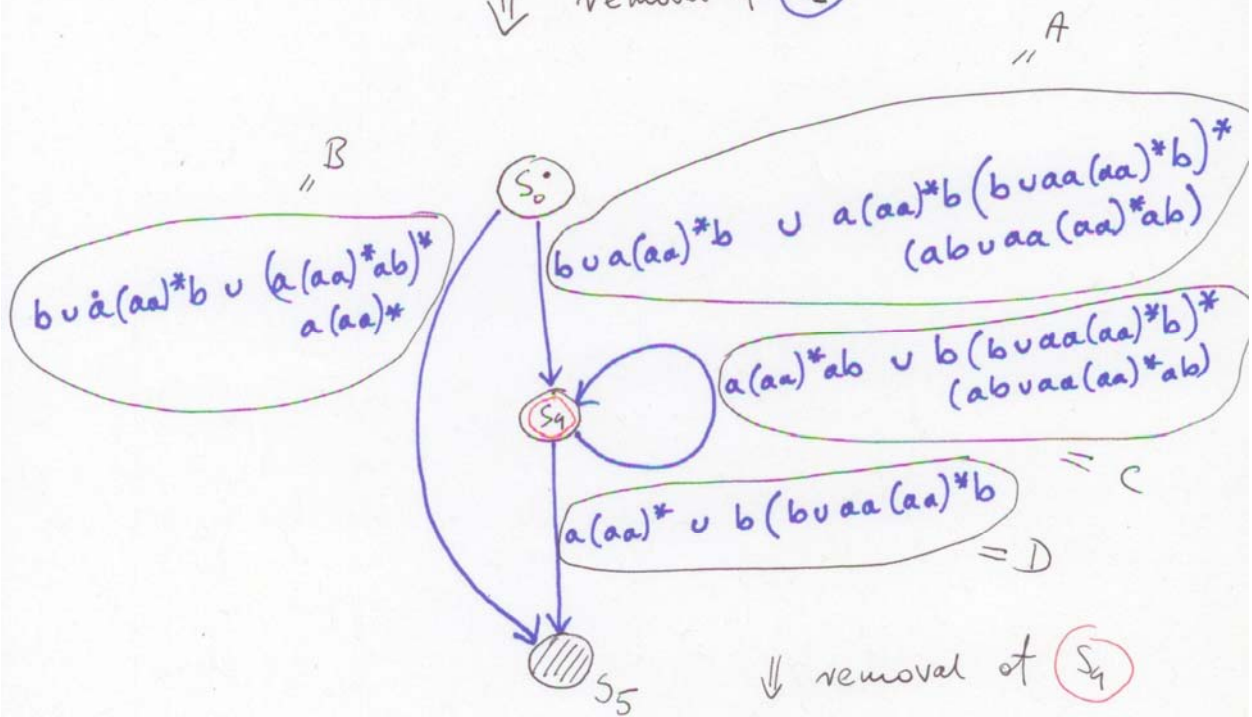 ⇓ removal of
= A
= B
S₀
b ∪ a(aa)*b ∪ a(aa)*b(b ∪ aa(aa)*b)*
(ab ∪ aa(aa)*ab)
b ∪ a(aa)*b ∪ (a(aa)*ab)*
a(aa)*
S₄
a(aa)*ab ∪ b(b ∪ aa(aa)*b)*
(ab ∪ aa(aa)*ab)
= C
a(aa)* ∪ b(b ∪ aa(aa)*b
= D
S₅
⇓ removal of S₄